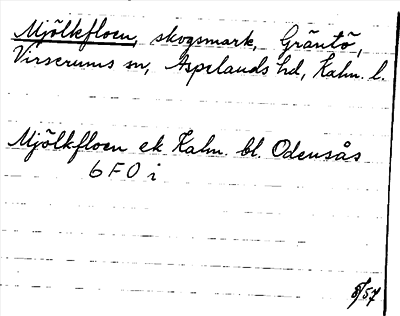 Mjölkfloen, skogsmark, Gräntö,
Virserums sn, Aspelands hd, Kalm. l.
Mjölkfloen ek Kalm. bl. Odensås
6 F 0 i
8/57